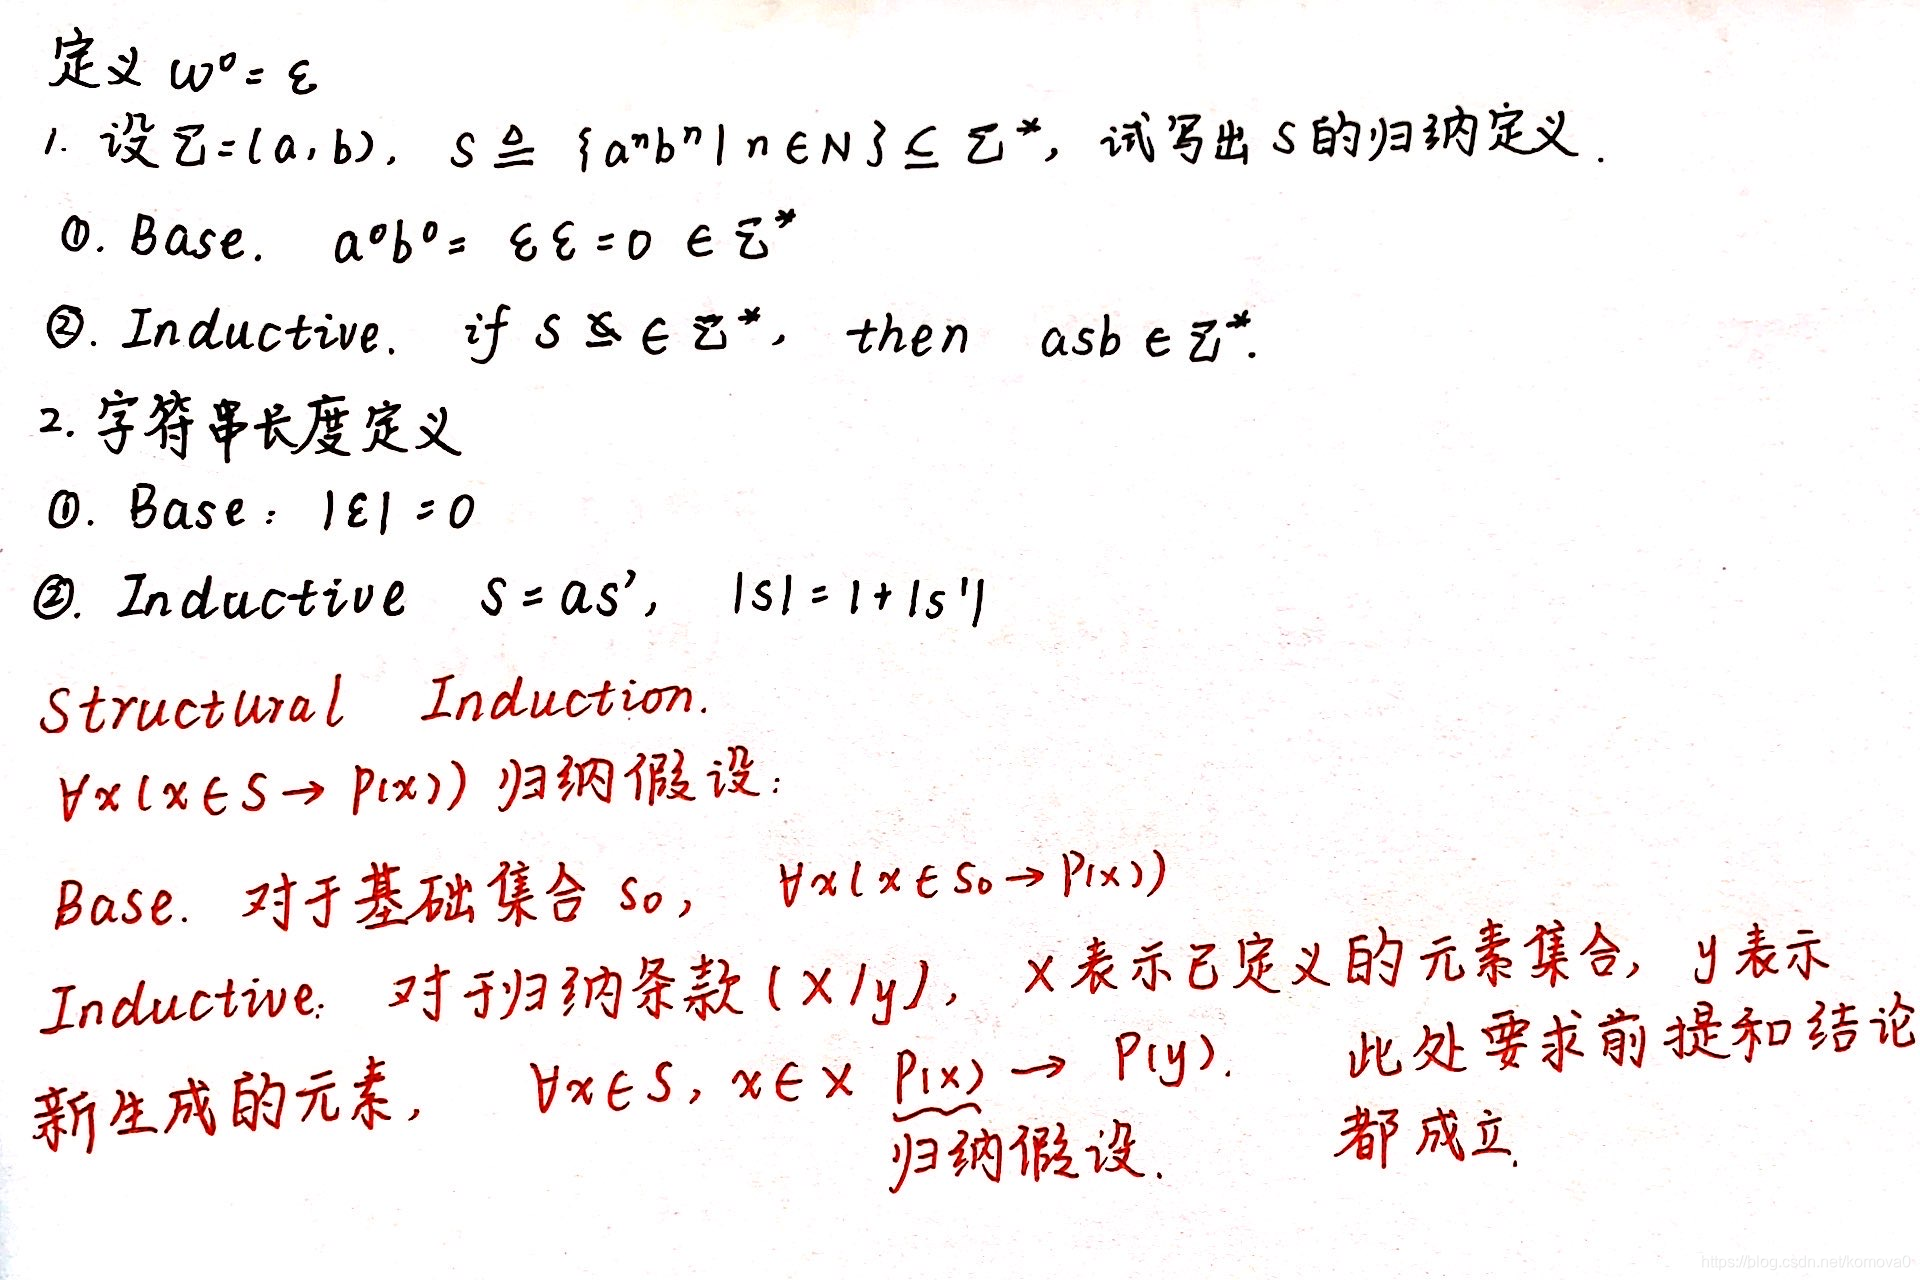 定义 w⁰ = ε
1. 设Σ=(a,b), S ≜ {aⁿbⁿ | n∈N} ⊆ Σ*, 试写出 S 的归纳定义.
①. Base. a⁰b⁰ = εε = 0 ∈ Σ*
②. Inductive. if s ∈ Σ*, then asb ∈ Σ*.
2. 字符串长度定义
①. Base: |ε| = 0
②. Inductive s = as', |s| = 1 + |s'|
Structural Induction.
∀x(x∈S → P(x)) 归纳假设:
Base. 对于基础集合 S₀, ∀x(x∈S₀→P(x))
Inductive: 对于归纳条款(X/y), X表示已定义的元素集合, y表示
新生成的元素, ∀x∈S, x∈X P(x) → P(y). 此处要求前提和结论
归纳假设. 都成立.
https://blog.csdn.net/komova0